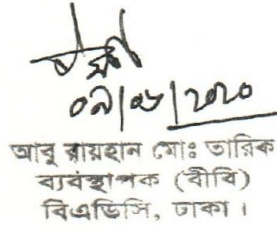 ০৯/০৮/২০২০
আবু রায়হান মোঃ তারিক
ব্যবস্থাপক (বীবি)
বিএডিসি, ঢাকা।